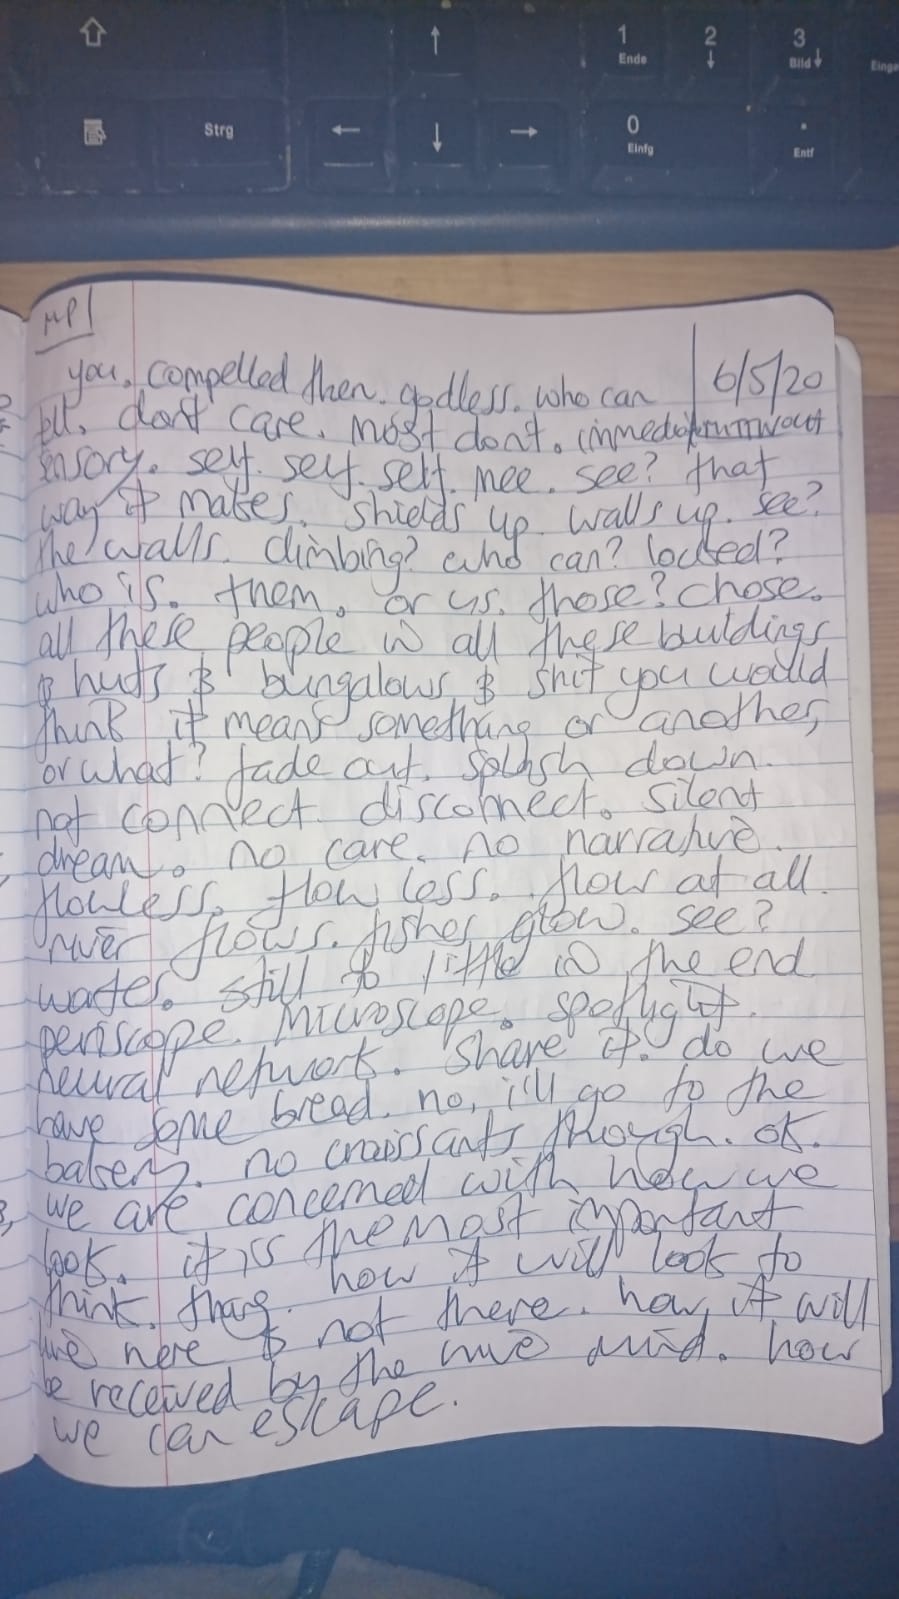 ↑
1
Ende
2
↓
3
Bild ↓
Einge
Strg
←
↓
→
0
Einfg
.
Entf
MP1
6/5/20
you. compelled then. godless. who can
tell. don't care. most dont.
sensory. self. self. self. mee. see? that
way it makes. shields up. walls up. see?
the walls. climbing? who can? locked?
who is. them. or us. those? chose.
all these people in all these buildings
& huts & bungalows & shit you would
think it means something or another,
or what? fade out. splash down.
not connect. disconnect. silent
dream. no care. no narrative.
flowless. flow less. flow at all.
river flows. fishes glow. see?
water. still to little in the end
periscope. microscope. spotlight.
neural network. share it. do we
have some bread. no, i'll go to the
bakery. no croissants though. ok.
we are concerned with how we
look. it is the most important
think. thang. how it will look to
here & not there. how it will
be received by the mind. how
we can escape.